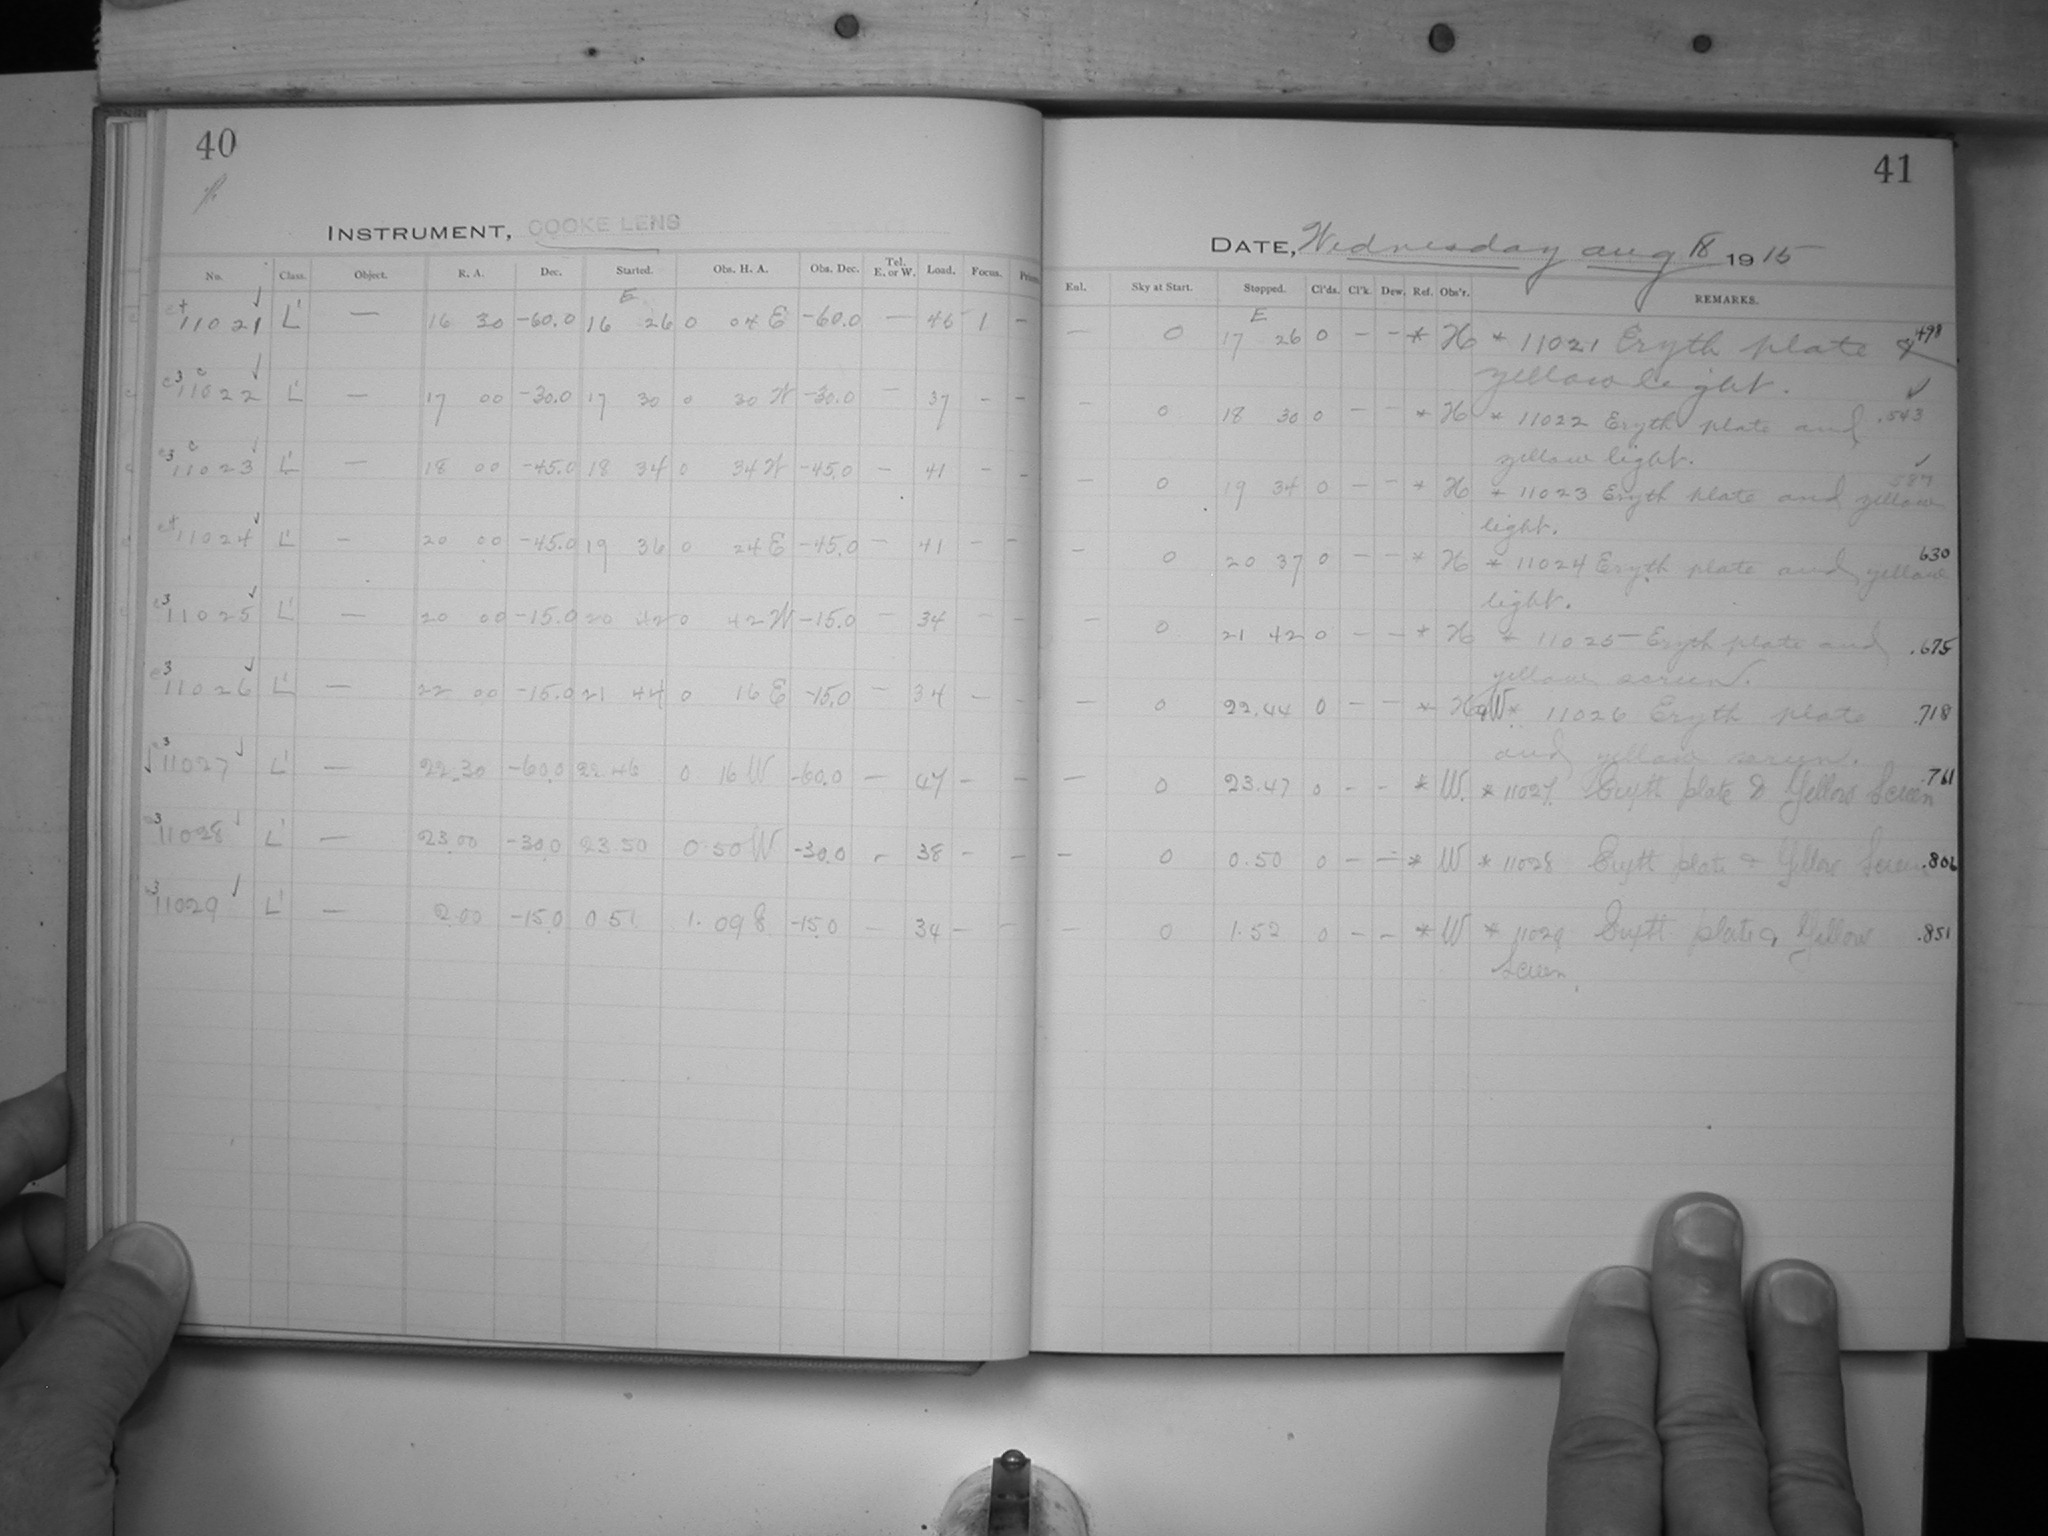 40
INSTRUMENT, COOKE LENS
No. Class. Object. R. A. Dec. Started. Obs. H. A. Obs. Dec. Tel. E. or W. Load. Focus.
E
11021 L' — 16 30 -60.0 16 26 0 04 E -60.0 — 46 1 -
11022 L' — 17 00 -30.0 17 30 0 30 W -30.0 — 37 - -
11023 L' — 18 00 -45.0 18 34 0 34 W -45.0 - 41 - -
11024 L' - 20 00 -45.0 19 36 0 24 E -45.0 — 41 - -
11025 L' — 20 00 -15.0 20 42 0 42 W -15.0 - 34 - -
11026 L' — 22 00 -15.0 21 44 0 16 E -15.0 - 34 - -
11027 L' — 22.30 -60.0 22 46 0 16 W -60.0 — 47 - -
11028 L' — 23.00 -30.0 23.50 0.50 W -30.0 - 38 - -
11029 L' — 2.00 -15.0 0 51 1.09 E -15.0 — 34 - -
41
DATE, Wednesday Aug 18 1915
Enl. Sky at Start. Stopped. Cl'ds. Cl'k. Dew. Ref. Obs'r. REMARKS.
E
— 0 17 26 0 - - * H * 11021 Eryth plate & .498
yellow light.
- 0 18 30 0 - - * H * 11022 Eryth plate and .543
yellow light.
- 0 19 34 0 - - * H * 11023 Eryth plate and yellow .587
light.
- 0 20 37 0 - - * H * 11024 Eryth plate and yellow 630
light.
- 0 21 42 0 - - * H * 11025 Eryth plate and .675
yellow screen.
- 0 22.44 0 - - * H & W * 11026 Eryth plate .718
and yellow screen.
— 0 23.47 0 - - * W. * 11027. Eryth plate & Yellow Screen .761
- 0 0.50 0 - - * W * 11028 Eryth plate & Yellow Screen .806
- 0 1.52 0 - - * W * 11029 Eryth plate & Yellow .851
Screen.